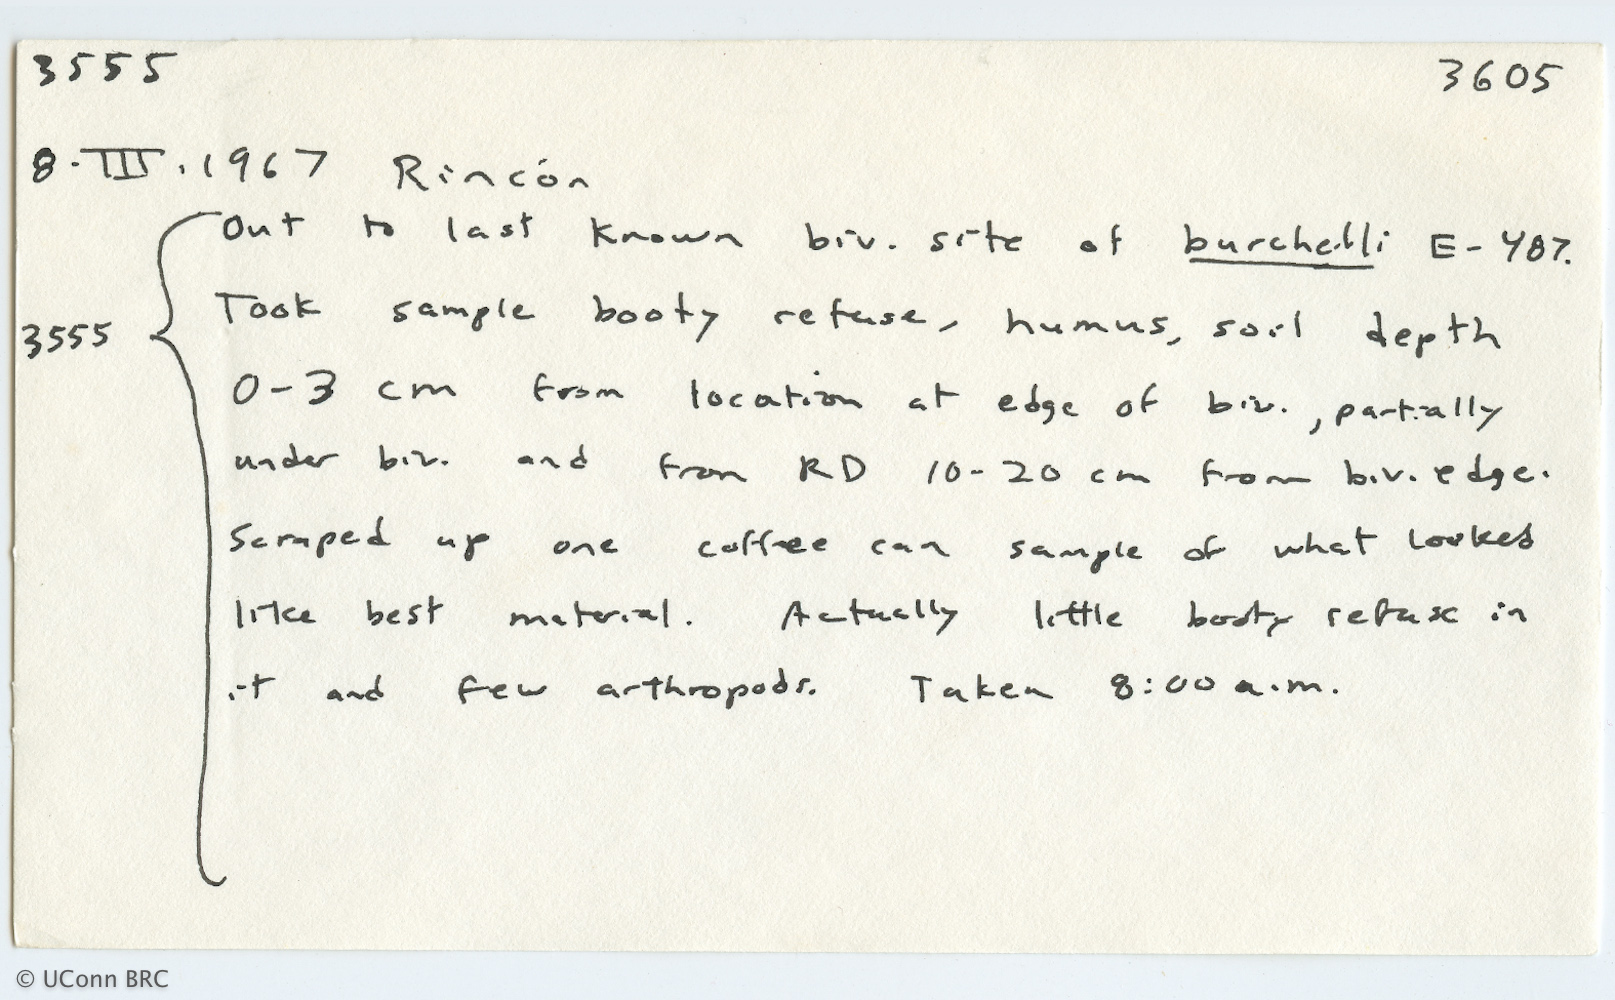 3555 3605
8.III.1967 Rincón
Out to last known biv. site of burchelli E-487.
3555 Took sample booty refuse, humus, soil depth
0-3 cm from location at edge of biv., partially
under biv. and from RD 10-20 cm from biv. edge.
Scraped up one coffee can sample of what looked
like best material. Actually little booty refuse in
it and few arthropods. Taken 8:00 a.m.
© UConn BRC